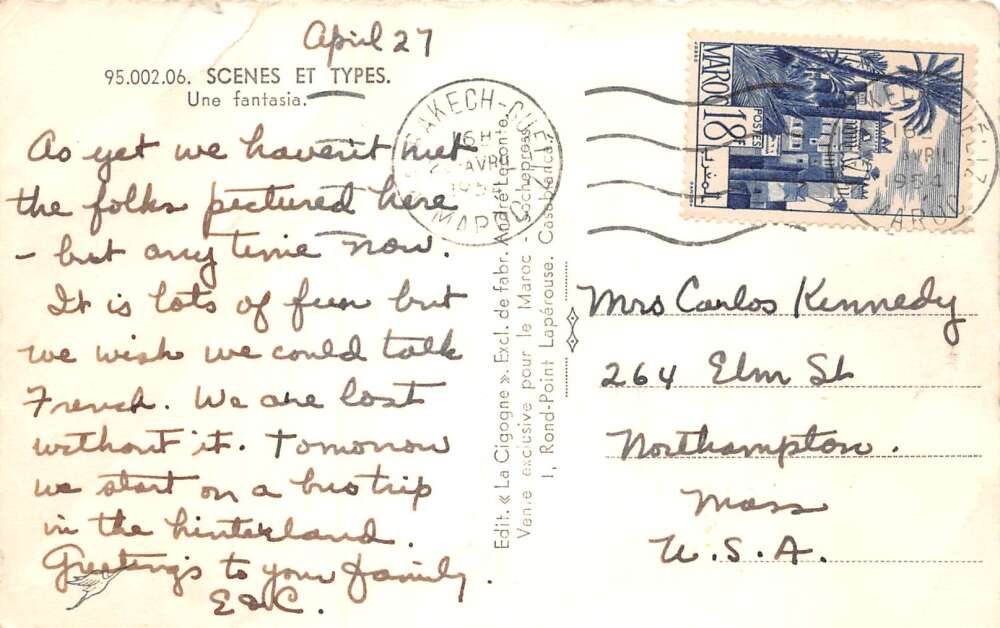 April 27
95.002.06. SCENES ET TYPES.
Une fantasia.
As yet we haven't met
the folks pictured here
- but any time now.
It is lots of fun but
we wish we could talk
French. We are lost
without it. Tomorrow
we start on a bus trip
in the hinterland.
Greetings to your family.
E & C.
Edit. « La Cigogne ». Excl. de fabr. André Leconte
Vente exclusive pour le Maroc - Sochepress
1, Rond-Point Lapérouse. Casablanca.
MAROC
18F
POSTES
AVRIL
MAROC
Mrs Carlos Kennedy
264 Elm St
Northampton.
Mass
U.S.A.